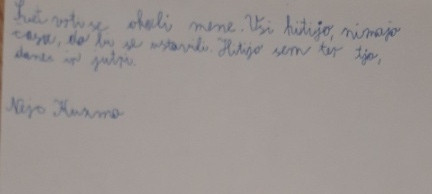 vrti se okoli mene. Vsi hitijo, nimajo
časa, da bi se ustavili. Hitijo sem ter tja,
danes in jutri.
Nejc Kuzma